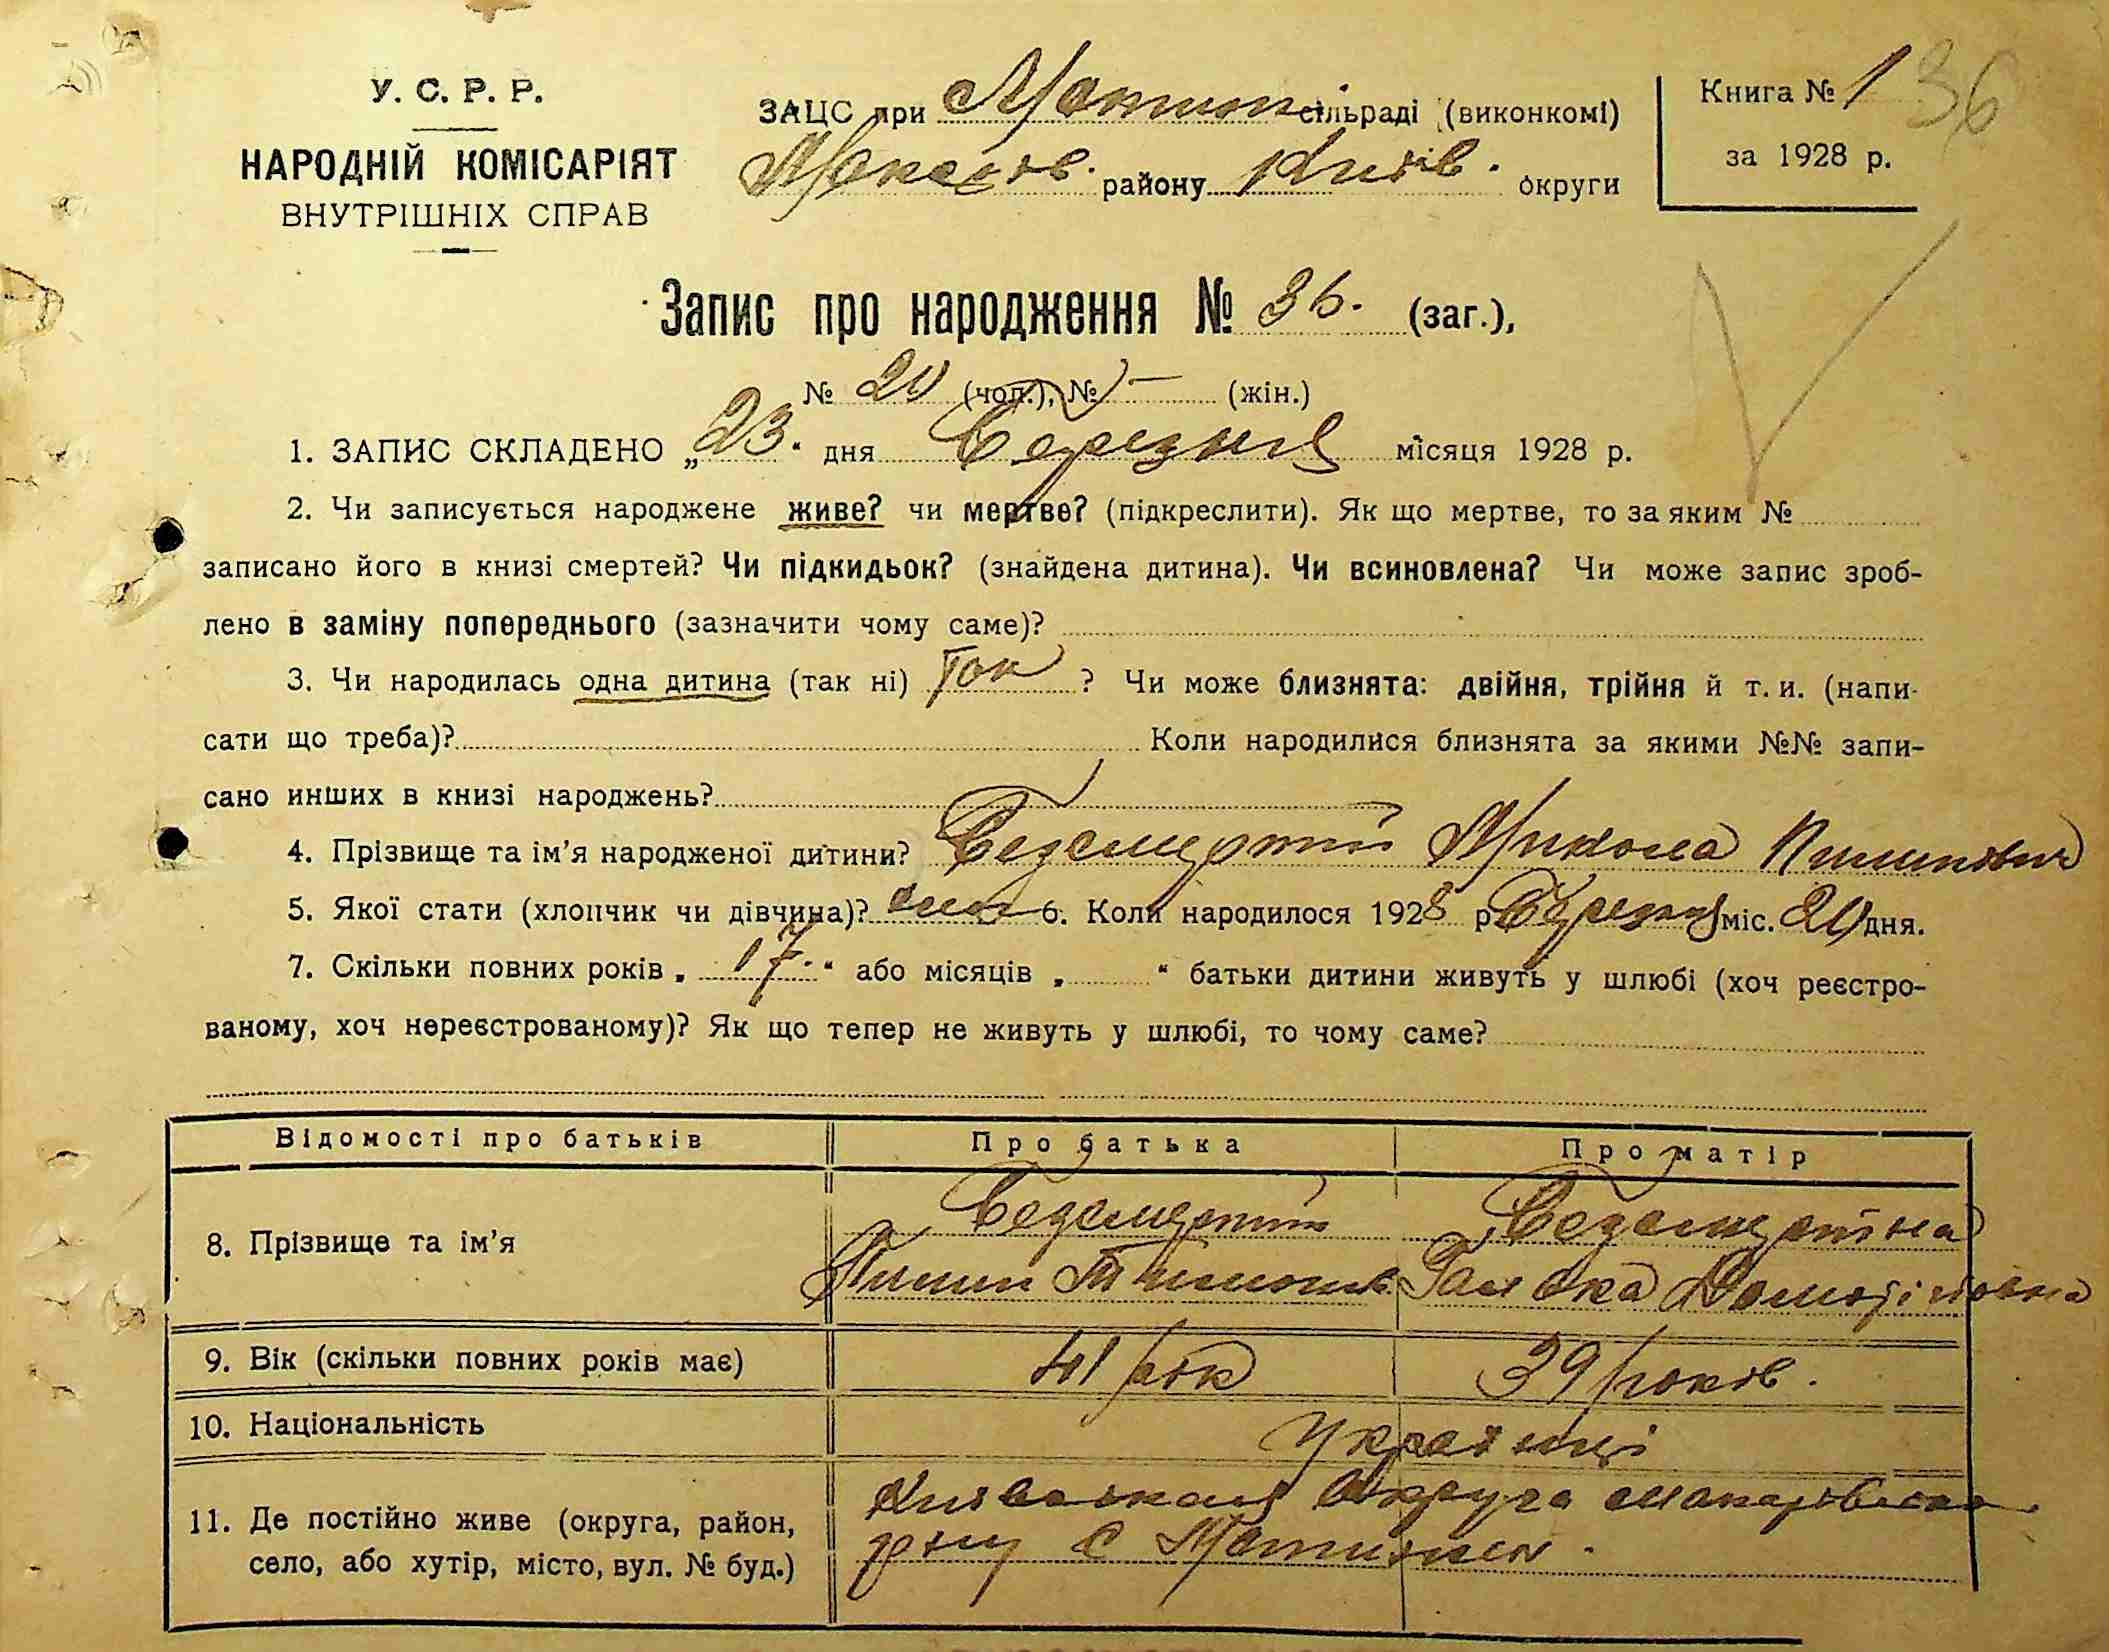 У. С. Р. Р.
НАРОДНІЙ КОМІСАРІЯТ
ВНУТРІШНІХ СПРАВ
ЗАЦС при сільраді (виконкомі)
району Київ. округи
Книга № 1 36
за 1928 р.
Запис про народження № 36. (заг.),
№ 20 (чол.), № — (жін.)
1. ЗАПИС СКЛАДЕНО „23“ дня Березня місяця 1928 р.
2. Чи записується народжене живе? чи мертве? (підкреслити). Як що мертве, то за яким №
записано його в книзі смертей? Чи підкидьок? (знайдена дитина). Чи всиновлена? Чи може запис зроб-
лено в заміну попереднього (зазначити чому саме)?
3. Чи народилась одна дитина (так ні) Так ? Чи може близнята: двійня, трійня й т. и. (напи-
сати що треба)? Коли народилися близнята за якими №№ запи-
сано инших в книзі народжень?
4. Прізвище та ім’я народженої дитини? Безсмертній Микола Пилипович
5. Якої стати (хлопчик чи дівчина)? 6. Коли народилося 1928 р. Березня міс. 20 дня.
7. Скільки повних років „ 17. “ або місяців „ “ батьки дитини живуть у шлюбі (хоч реєстро-
ваному, хоч нереєстрованому)? Як що тепер не живуть у шлюбі, то чому саме?
Відомості про батьків Про батька Про матір
8. Прізвище та ім’я
Безсмертній
Пилип
Безсмертна
9. Вік (скільки повних років має) 41 рік 39 років.
10. Національність Українці
11. Де постійно живе (округа, район,
село, або хутір, місто, вул. № буд.)
Київська округа
с